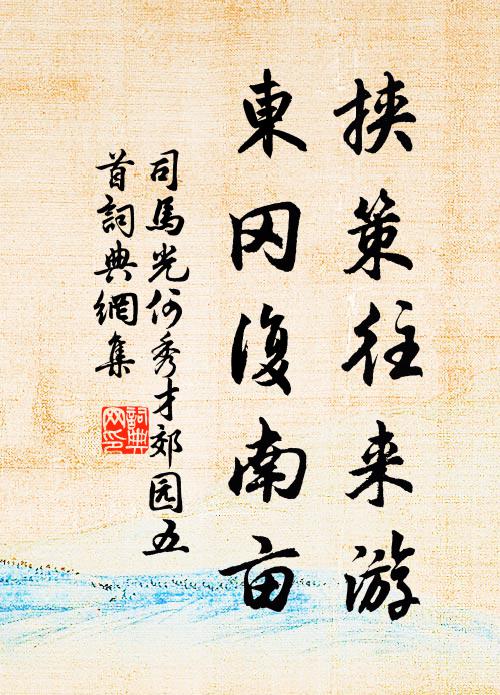 挟策往来游
東冈復南亩
司馬光何秀才郊园五
首詞典網集
詞典
网印